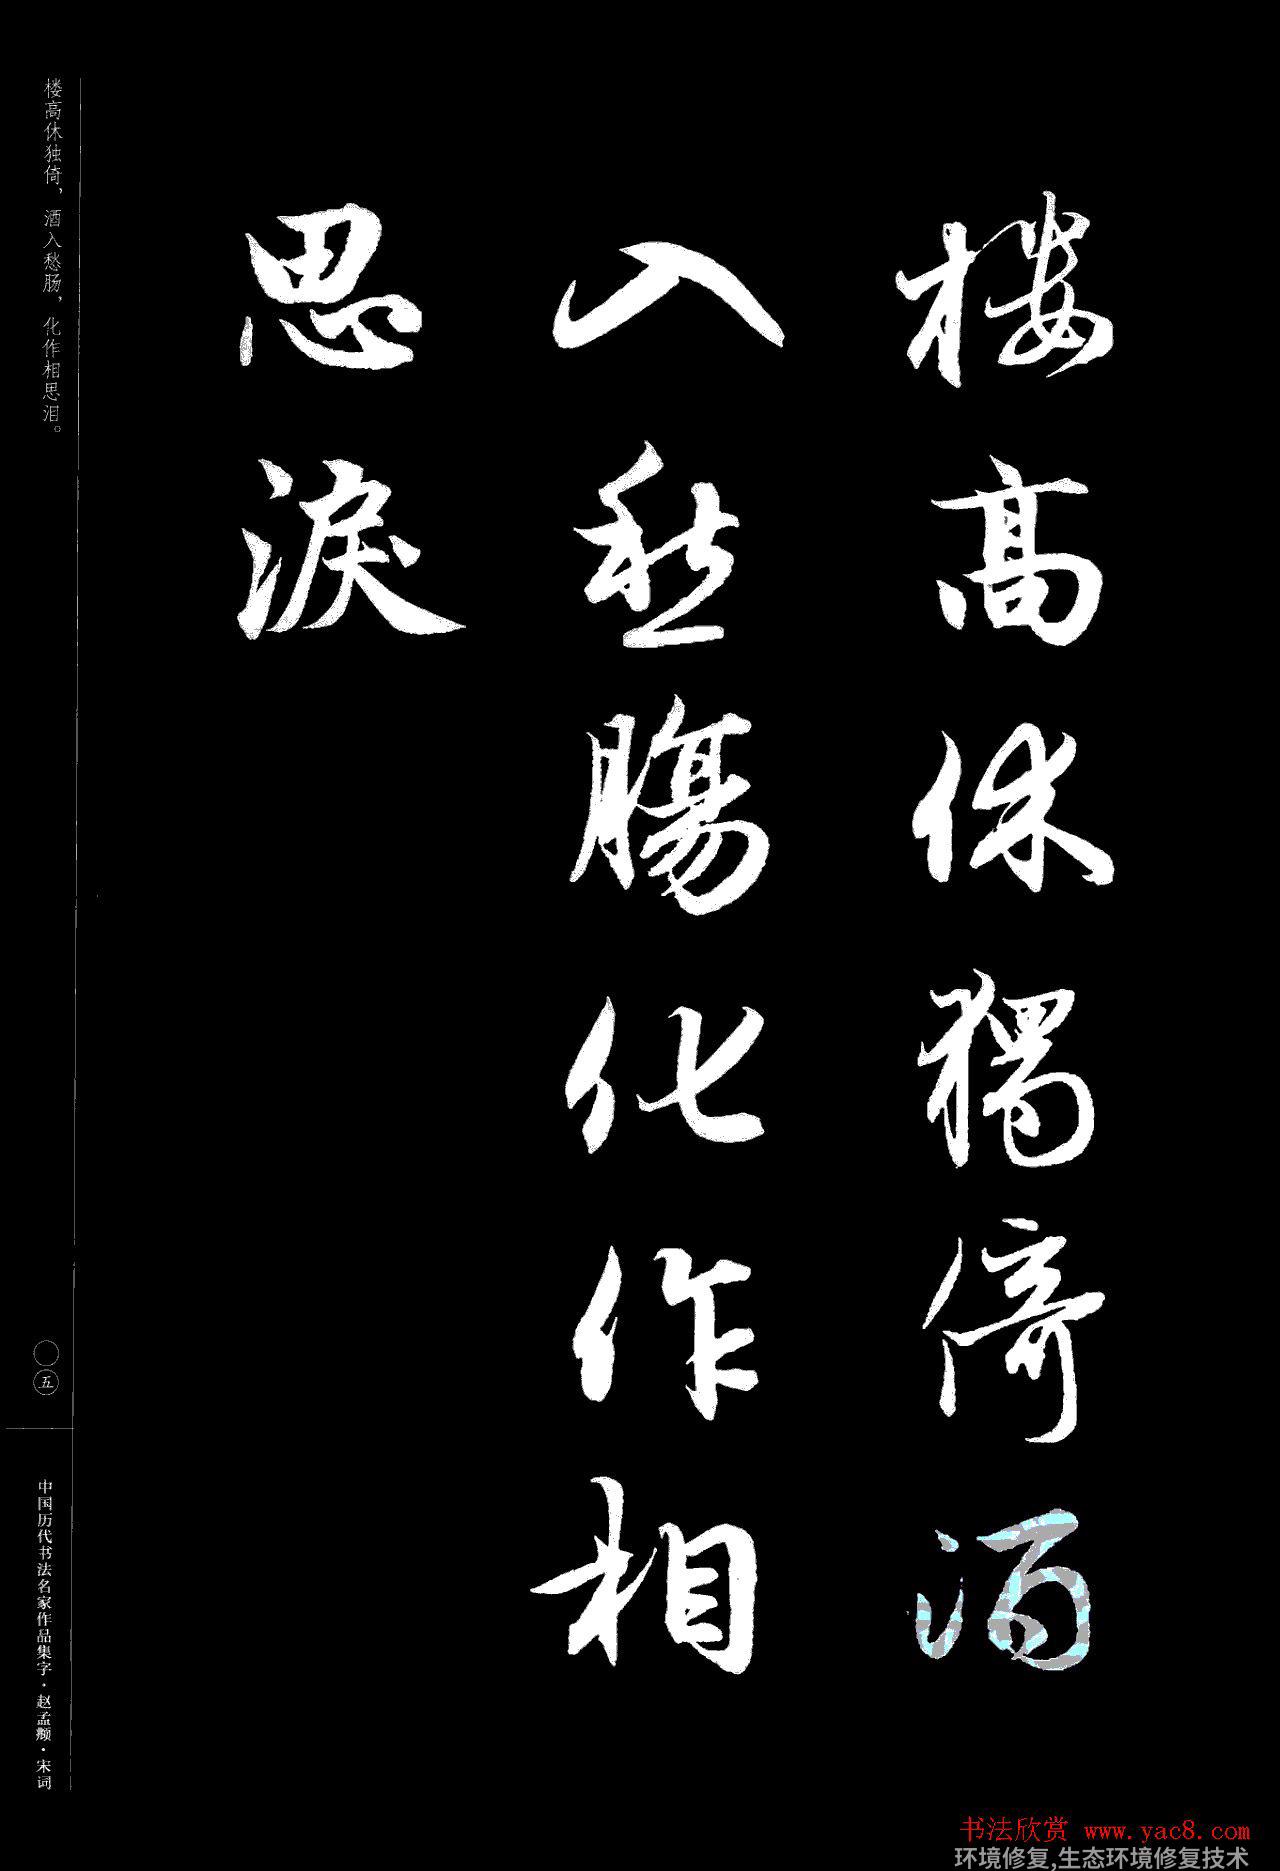 樓高休獨倚酒
入愁腸化作相
思淚
楼高休独倚，酒入愁肠，化作相思泪。
〇五
中国历代书法名家作品集字·赵孟頫·宋词
书法欣赏 www.yac8.com
环境修复,生态环境修复技术